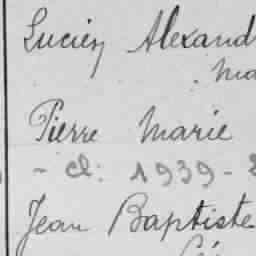 Lucien Alexand
Ma
Pierre Marie
- Cl: 1939 -
Jean Baptiste